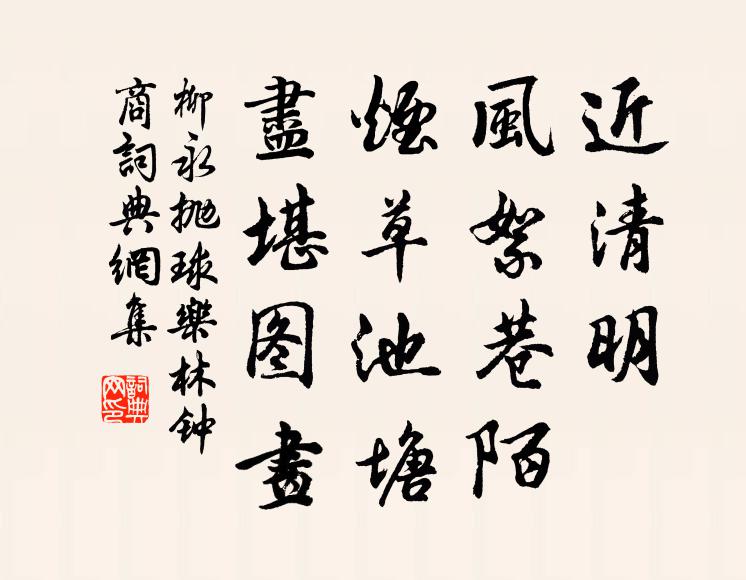 近清明
風絮巷陌
煙草池塘
盡堪图畫
柳永抛球樂林钟
商詞典網集
詞典
网印